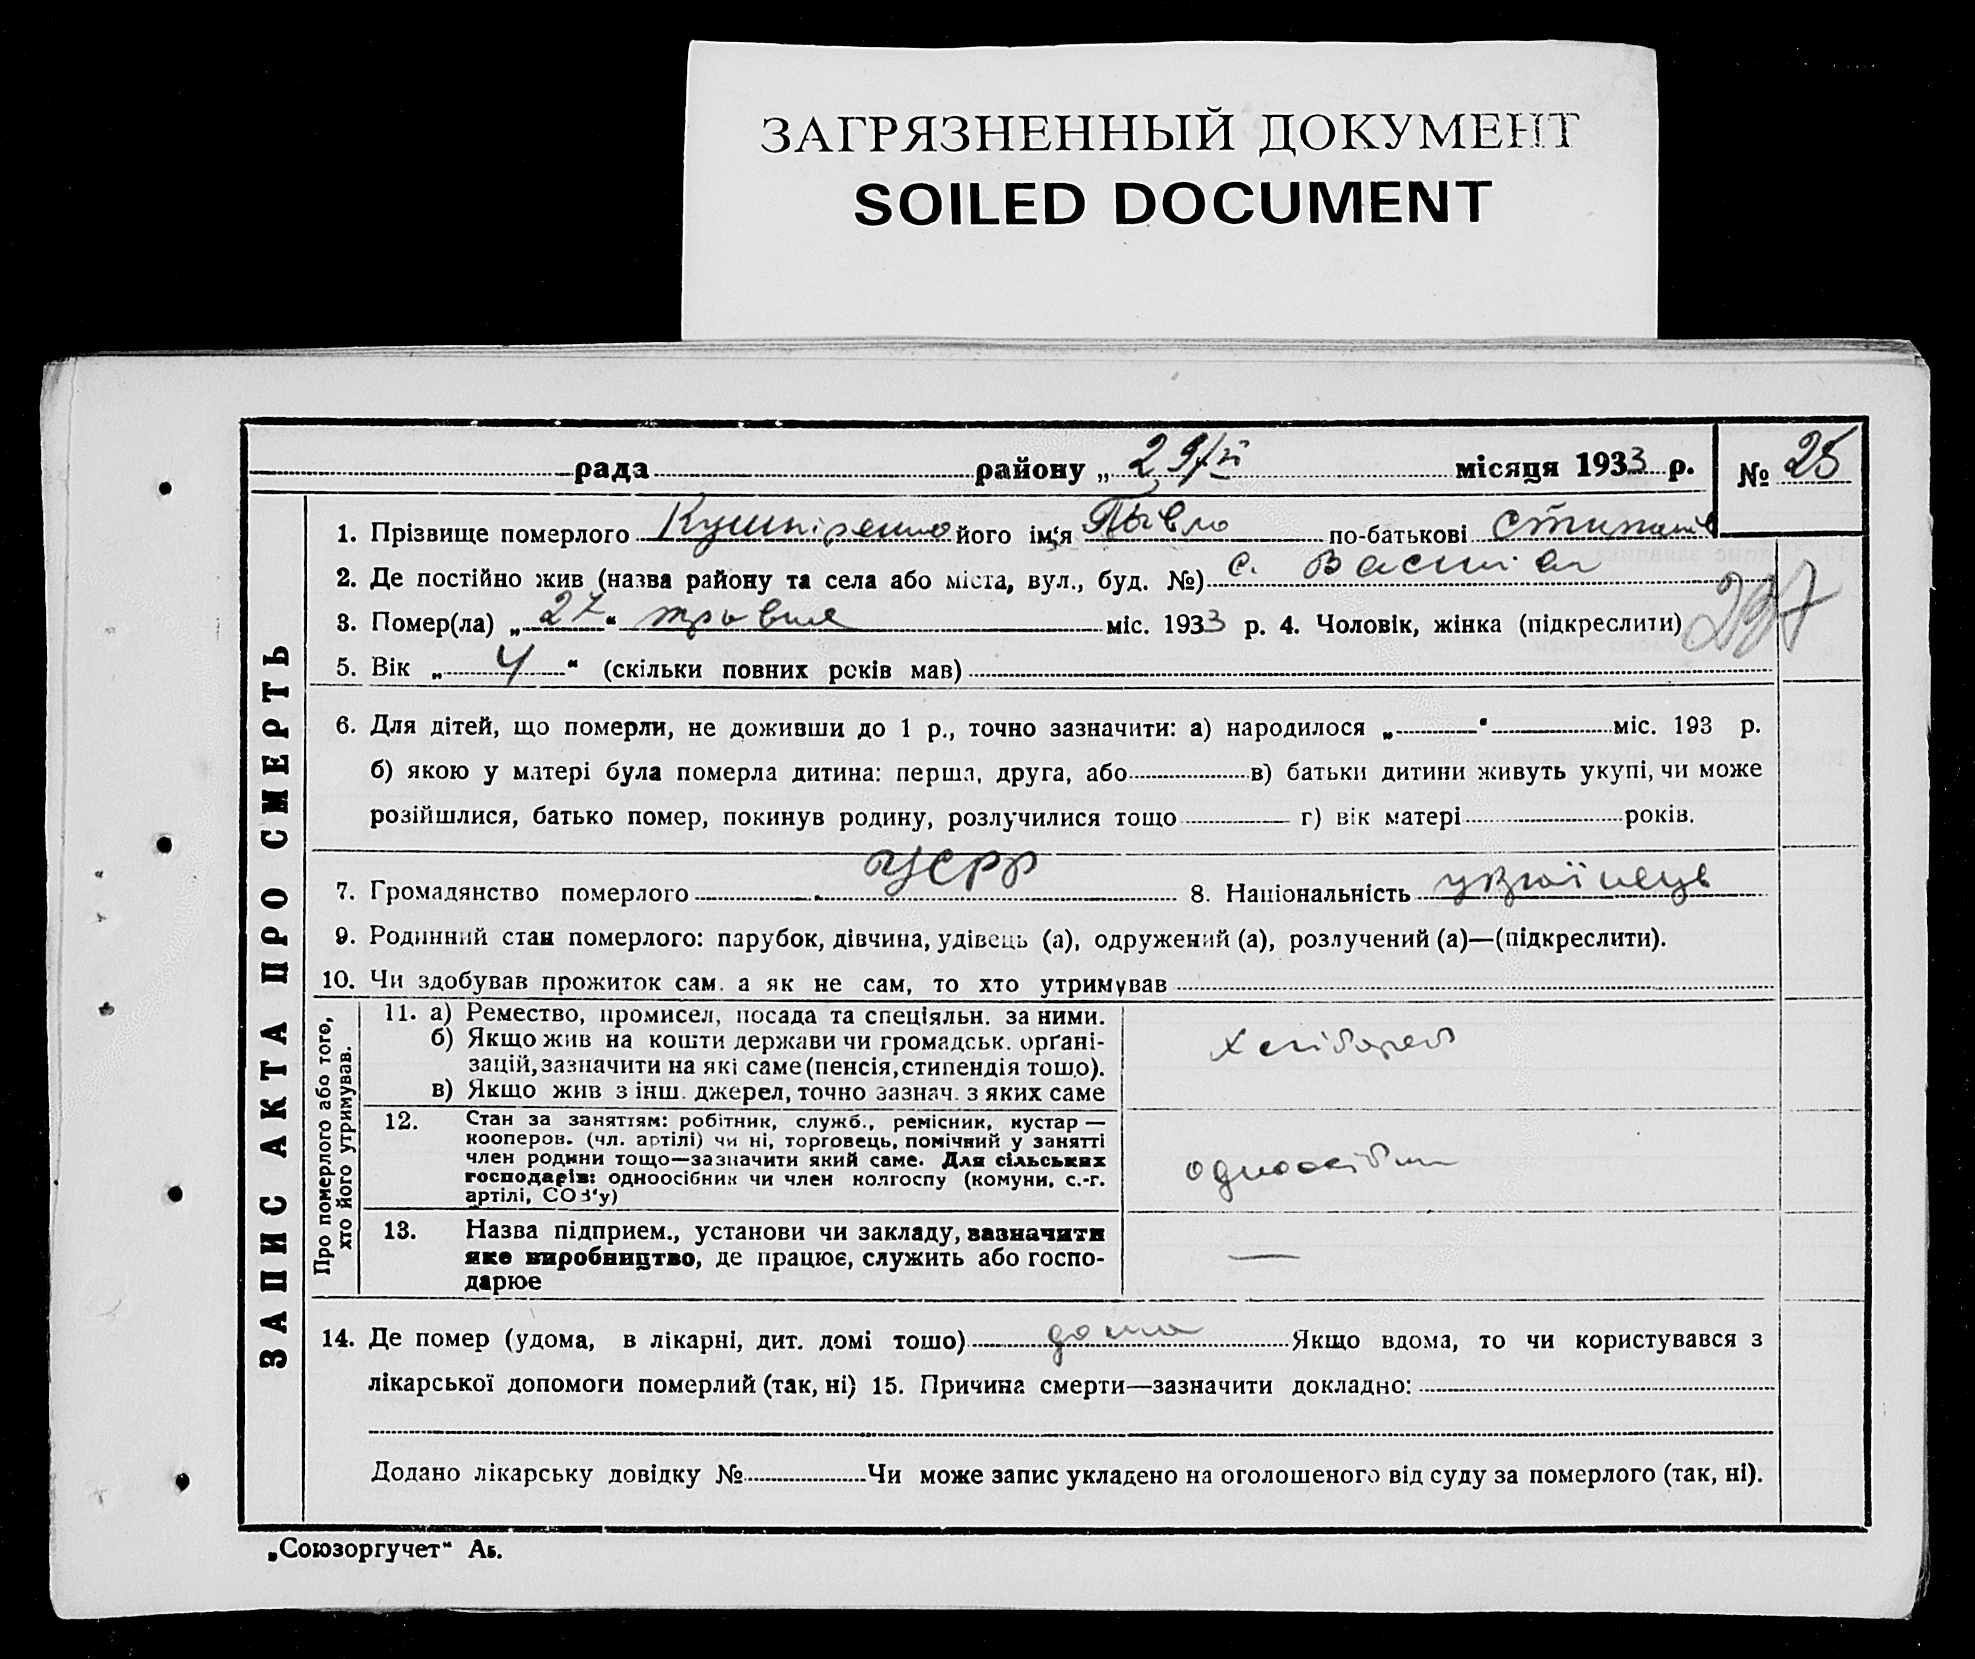 ЗАГРЯЗНЕННЫЙ ДОКУМЕНТ
SOILED DOCUMENT
рада району „ 29/V місяця 1933 р. № 25
1. Прізвище померлого Кушніренко його ім'я Павло по-батькові
2. Де постійно жив (назва району та села або міста, вул., буд. №) с.
3. Помер(ла) „27“ травня міс. 1933 р. 4. Чоловік, жінка (підкреслити)
5. Вік „4“ (скільки повних років мав)
6. Для дітей, що померли, не доживши до 1 р., точно зазначити: а) народилося „ “ міс. 193 р.
б) якою у матері була померла дитина: перша, друга, або в) батьки дитини живуть укупі, чи може
розійшлися, батько помер, покинув родину, розлучилися тощо г) вік матері років.
7. Громадянство померлого УСРР 8. Національність українець
9. Родинний стан померлого: парубок, дівчина, удівець (а), одружений (а), розлучений (а)—(підкреслити).
10. Чи здобував прожиток сам, а як не сам, то хто утримував
11. а) Ремество, промисел, посада та спеціяльн. за ними.
б) Якщо жив на кошти держави чи громадськ. орґані-
зацій, зазначити на які саме (пенсія, стипендія тощо).
в) Якщо жив з інш. джерел, точно зазнач. з яких саме
хлібороб
12. Стан за заняттям: робітник, служб., ремісник, кустар —
кооперов. (чл. артілі) чи ні, торговець, помічний у занятті
член родини тощо—зазначити який саме. Для сільських
господарів: одноосібник чи член колгоспу (комуни, с.-г.
артілі, СОЗ'у)
одноосібник
13. Назва підприєм., установи чи закладу, зазначити
яке виробництво, де працює, служить або госпо-
дарює
—
14. Де помер (удома, в лікарні, дит. домі тощо) дома Якщо вдома, то чи користувався з
лікарської допомоги померлий (так, ні) 15. Причина смерти—зазначити докладно:
Додано лікарську довідку № Чи може запис укладено на оголошеного від суду за померлого (так, ні).
ЗАПИС АКТА ПРО СМЕРТЬ
Про померлого або того,
хто його утримував.
297
„Союзоргучет“